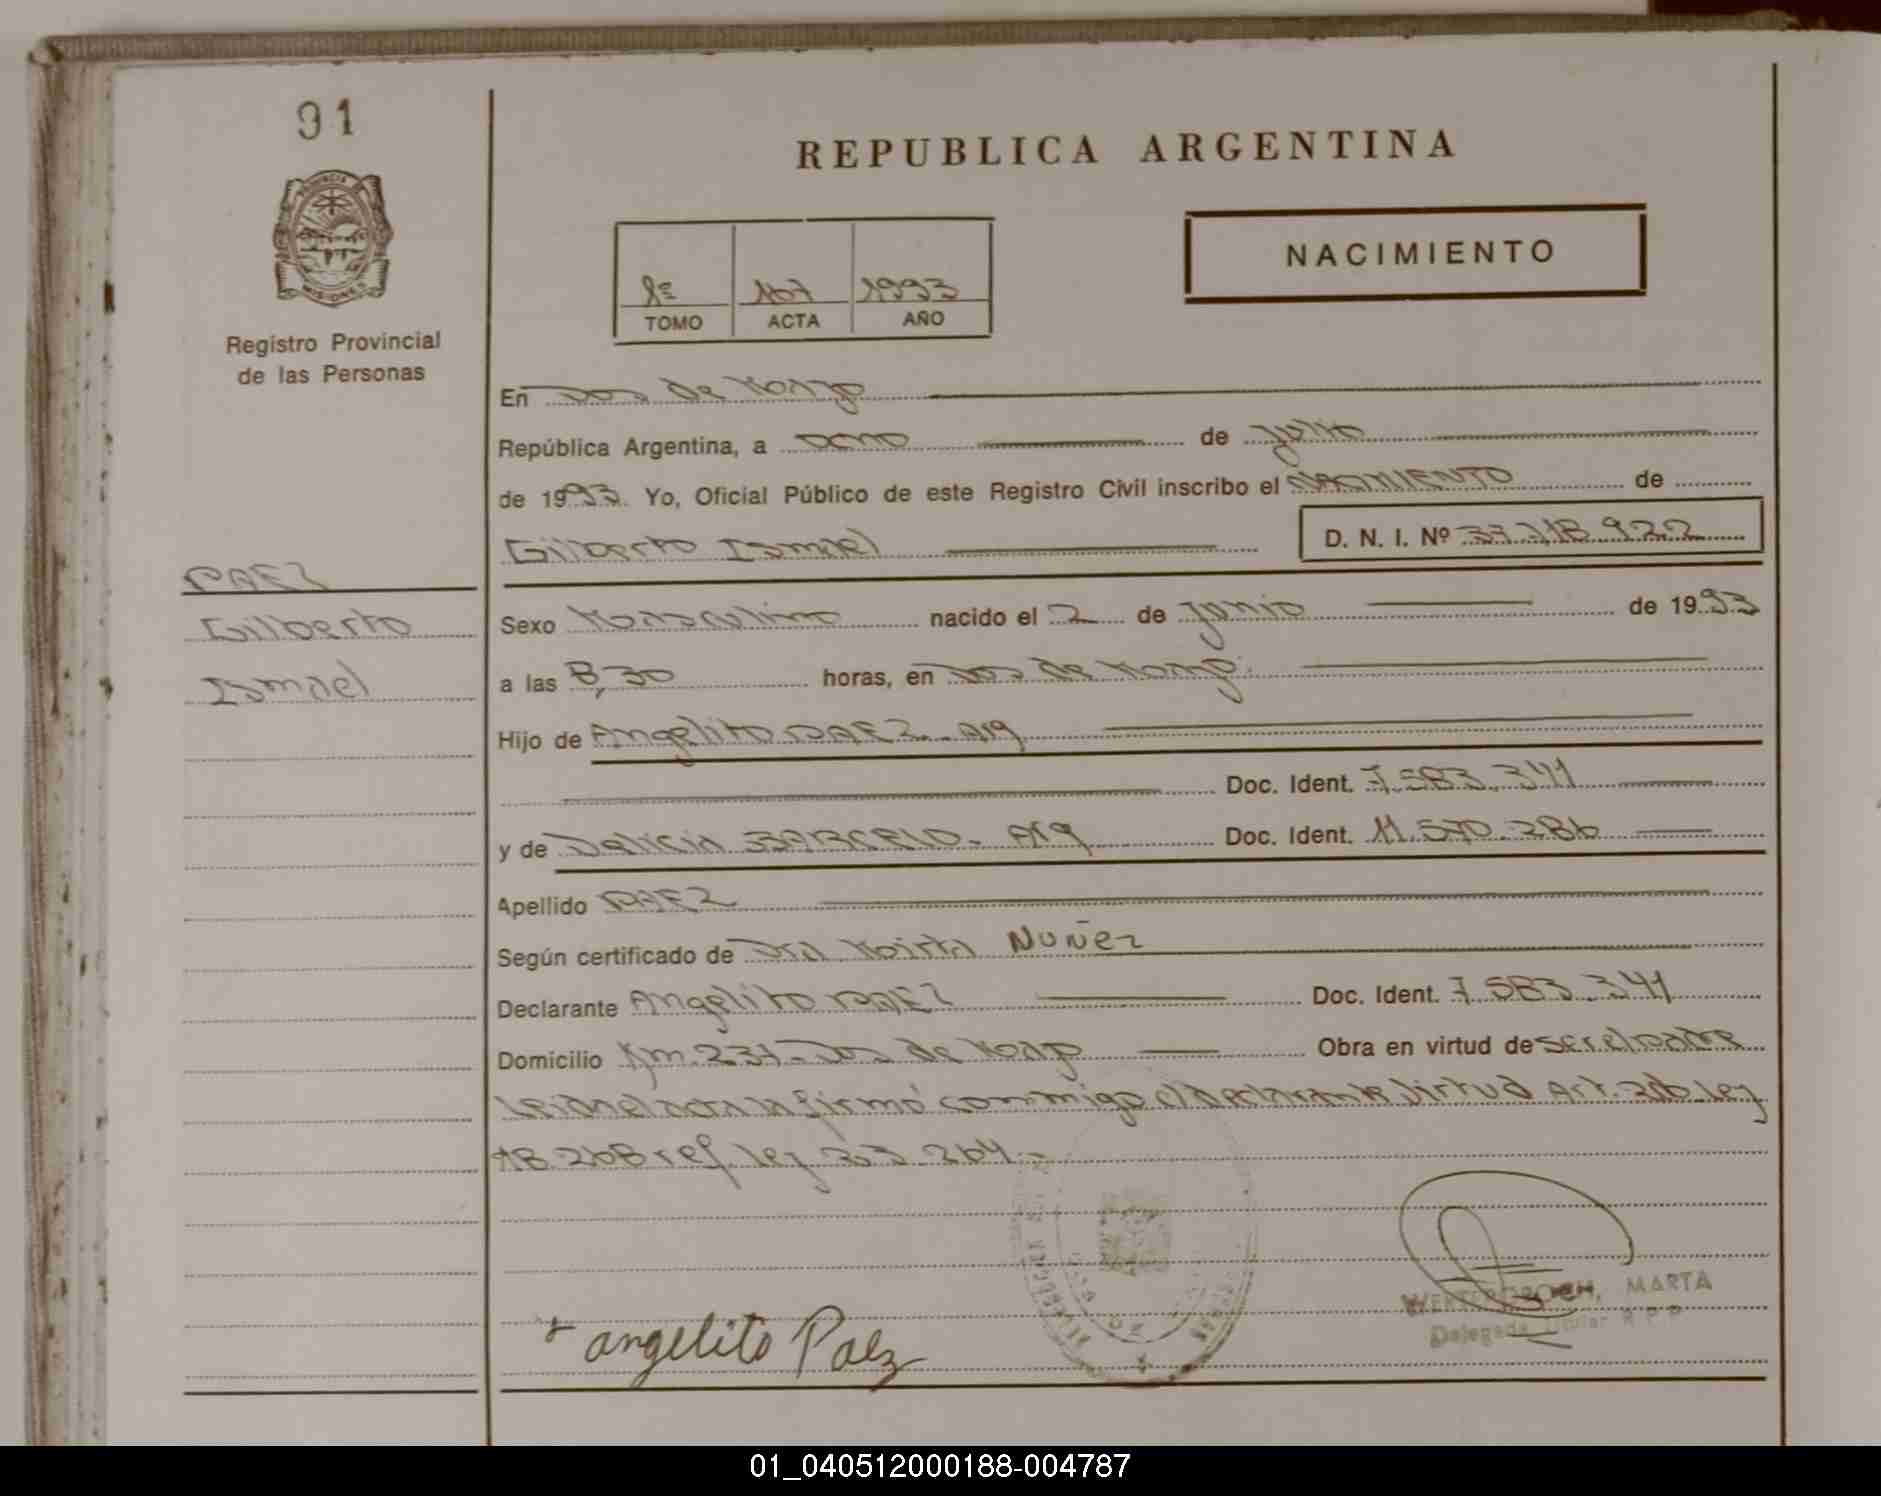 91
PROVINCIA DE
MISIONES
Registro Provincial
de las Personas
REPUBLICA ARGENTINA
NACIMIENTO
1º 107 1993
TOMO ACTA AÑO
En Dos de Mayo
República Argentina, a ocho de julio
de 1993. Yo, Oficial Público de este Registro Civil inscribo el NACIMIENTO de
Gilberto Ismael D. N. I. Nº 37.218.922
PAEZ
Gilberto
Ismael
Sexo Masculino nacido el 2 de junio de 1993
a las 8,30 horas, en Dos de Mayo.
Hijo de Angelito PAEZ - Arg
Doc. Ident. 7.583.341
y de Delicia Arg Doc. Ident. 11.570.286
Apellido PAEZ
Según certificado de Dra Mirta Nuñez
Declarante Angelito PAEZ Doc. Ident. 7.583.341
Domicilio Km. 237 - Dos de Mayo Obra en virtud de ser el padre
Leida el acta la firmó conmigo el declarante Virtud Art. Ley
18.268 ref. ley 23.264.-
angelito Paez
MARTA
Delegada Titular R P P
01_040512000188-004787